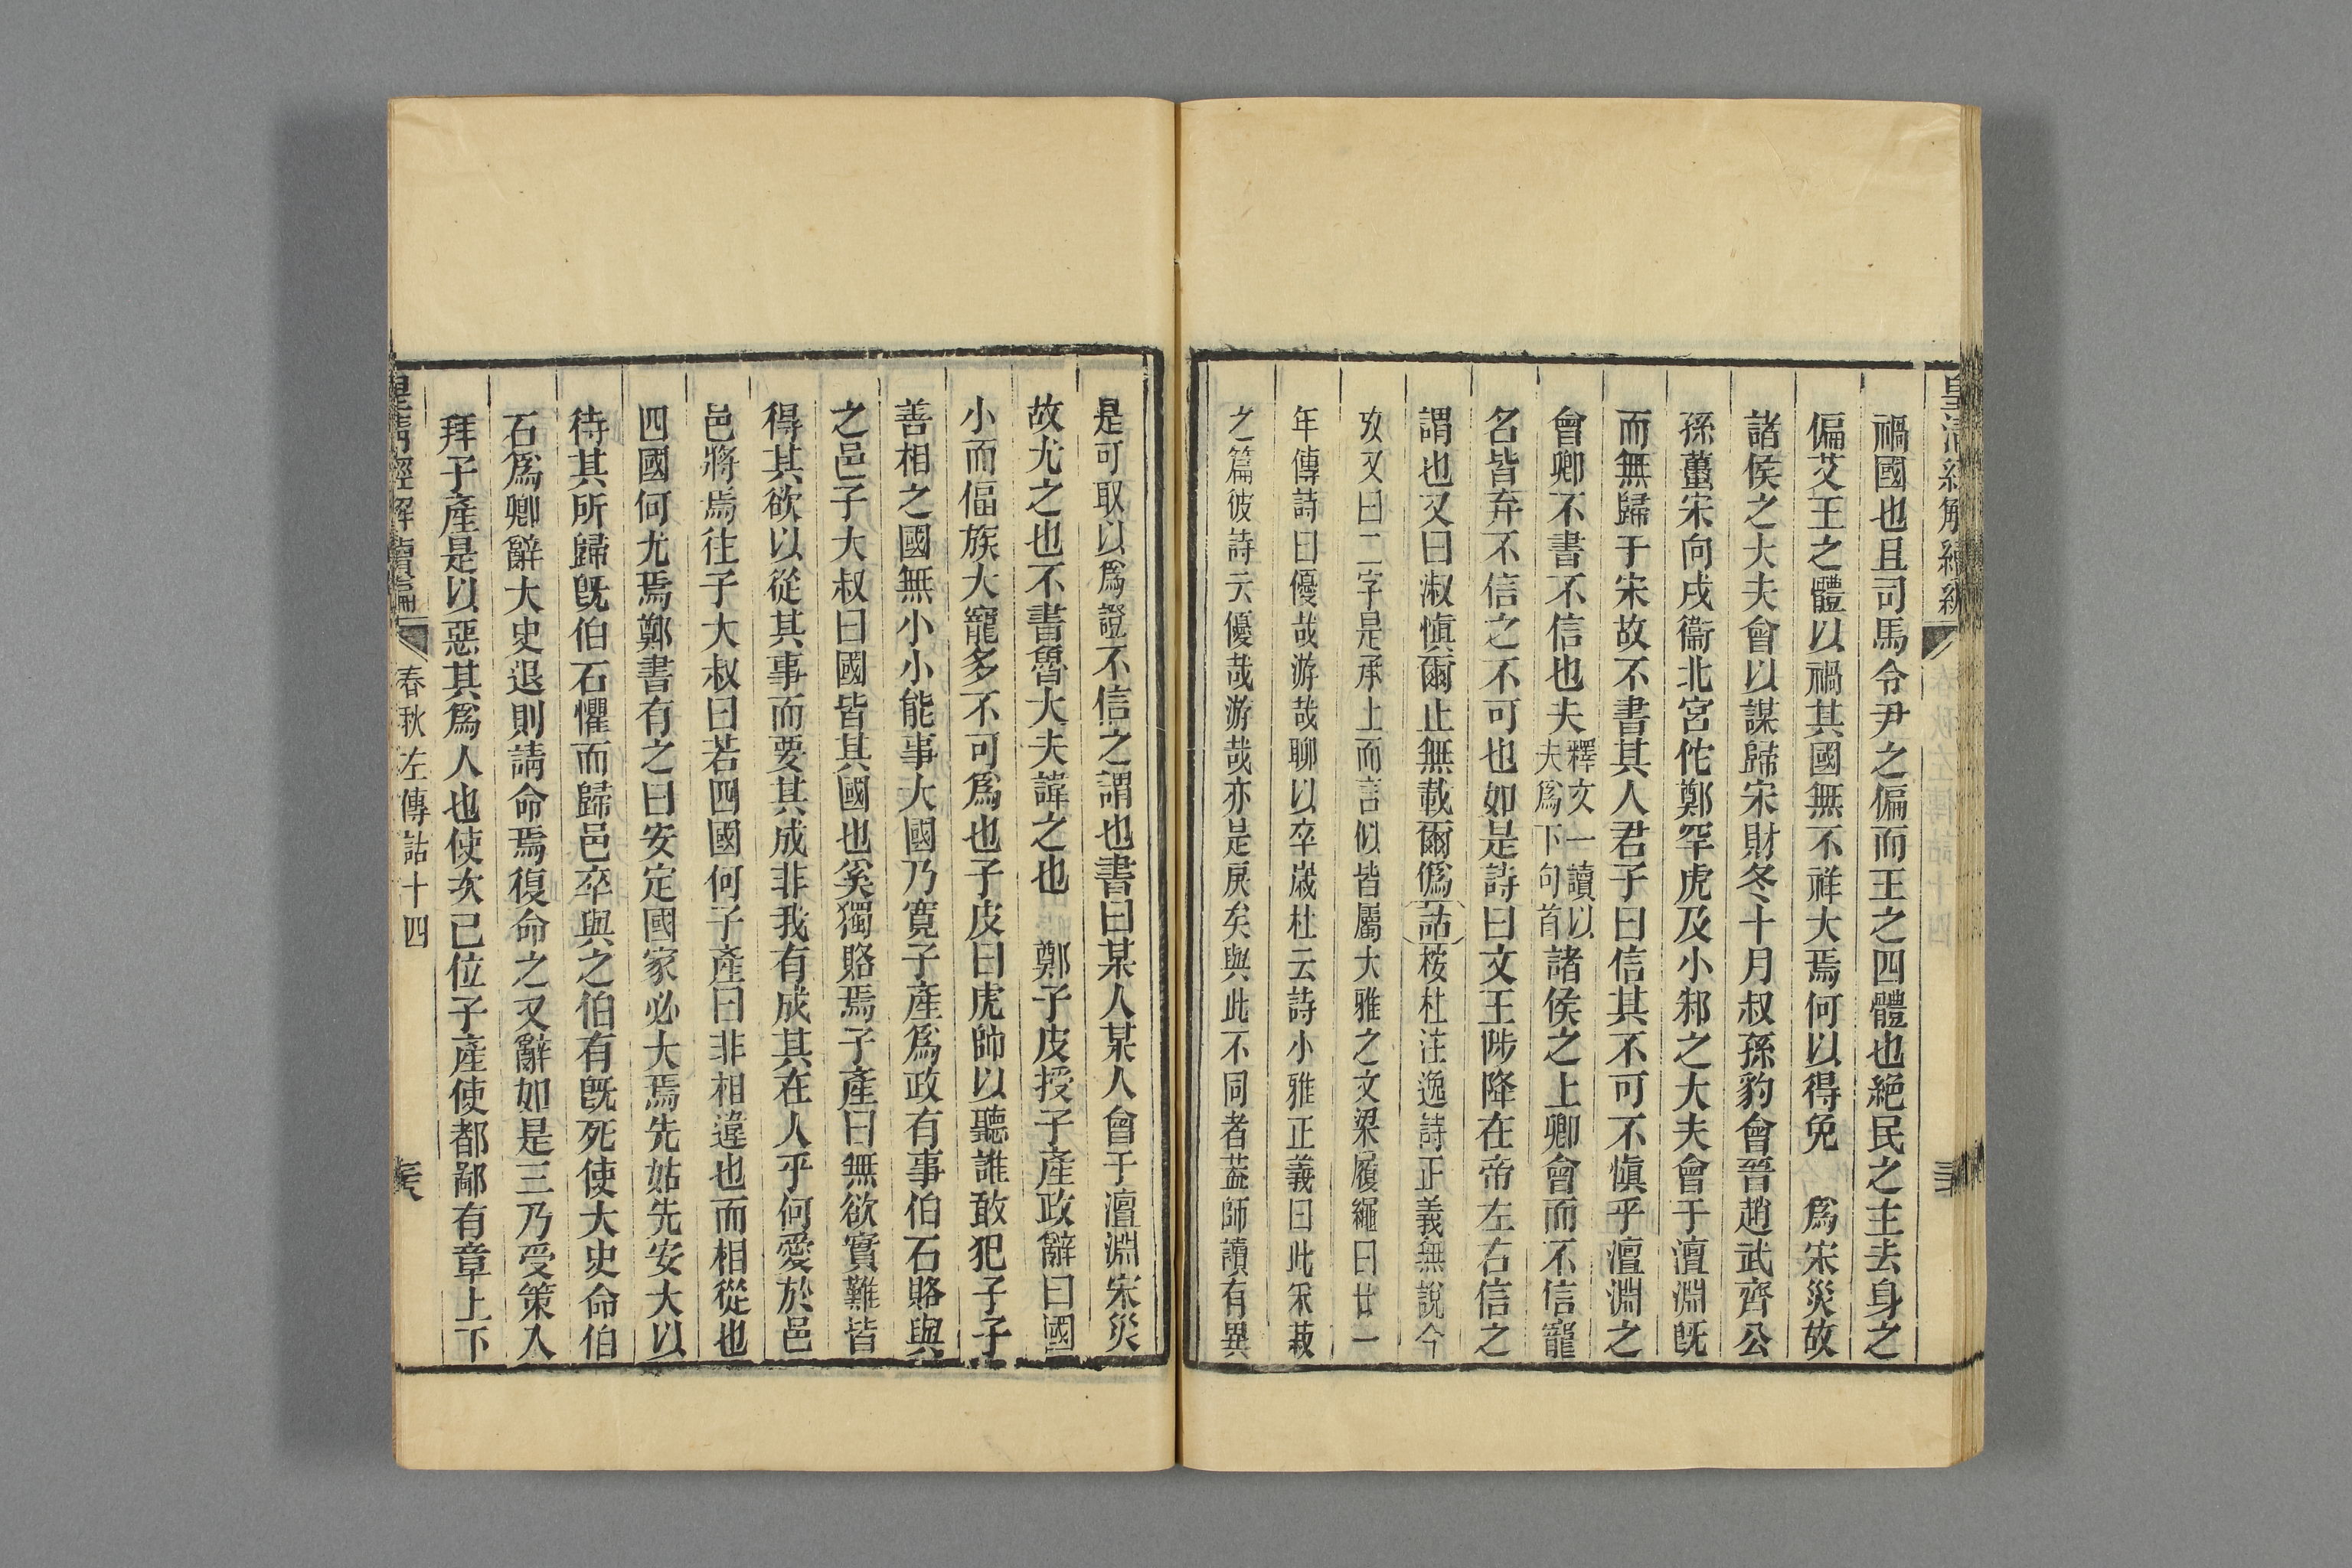 禍國也且司馬令尹之偏而王之四體也絕民之主去身之
偏艾王之體以禍其國無不祥大焉何以得免　爲宋災故
諸侯之大夫會以謀歸宋財冬十月叔孫豹會晉趙武齊公
孫蠆宋向戌衞北宮佗鄭罕虎及小邾之大夫會于澶淵旣
而無歸于宋故不書其人君子曰信其不可不愼乎澶淵之
會卿不書不信也夫釋文一讀以夫爲下句首諸侯之上卿會而不信寵
名皆弃不信之不可也如是詩曰文王陟降在帝左右信之
謂也又曰淑愼爾止無載爾僞詁桉杜注逸詩正義無說今
攷又曰二字是承上而言似皆屬大雅之文梁履繩曰廿一
年傳詩曰優哉游哉聊以卒歲杜云詩小雅正義曰此采菽
之篇彼詩云優哉游哉亦是戾矣與此不同者葢師讀有異
是可取以爲證不信之謂也書曰某人某人會于澶淵宋災
故尤之也不書魯大夫諱之也　鄭子皮授子產政辭曰國
小而偪族大寵多不可爲也子皮曰虎帥以聽誰敢犯子子
善相之國無小小能事大國乃寬子產爲政有事伯石賂與
之邑子大叔曰國皆其國也奚獨賂焉子產曰無欲實難皆
得其欲以從其事而要其成非我有成其在人乎何愛於邑
邑將焉往子大叔曰若四國何子產曰非相違也而相從也
四國何尤焉鄭書有之曰安定國家必大焉先姑先安大以
待其所歸旣伯石懼而歸邑卒與之伯有旣死使大史命伯
石爲卿辭大史退則請命焉復命之又辭如是三乃受策入
拜子產是以惡其爲人也使次己位子產使都鄙有章上下
皇淸經解續編　春秋左傳詁十四